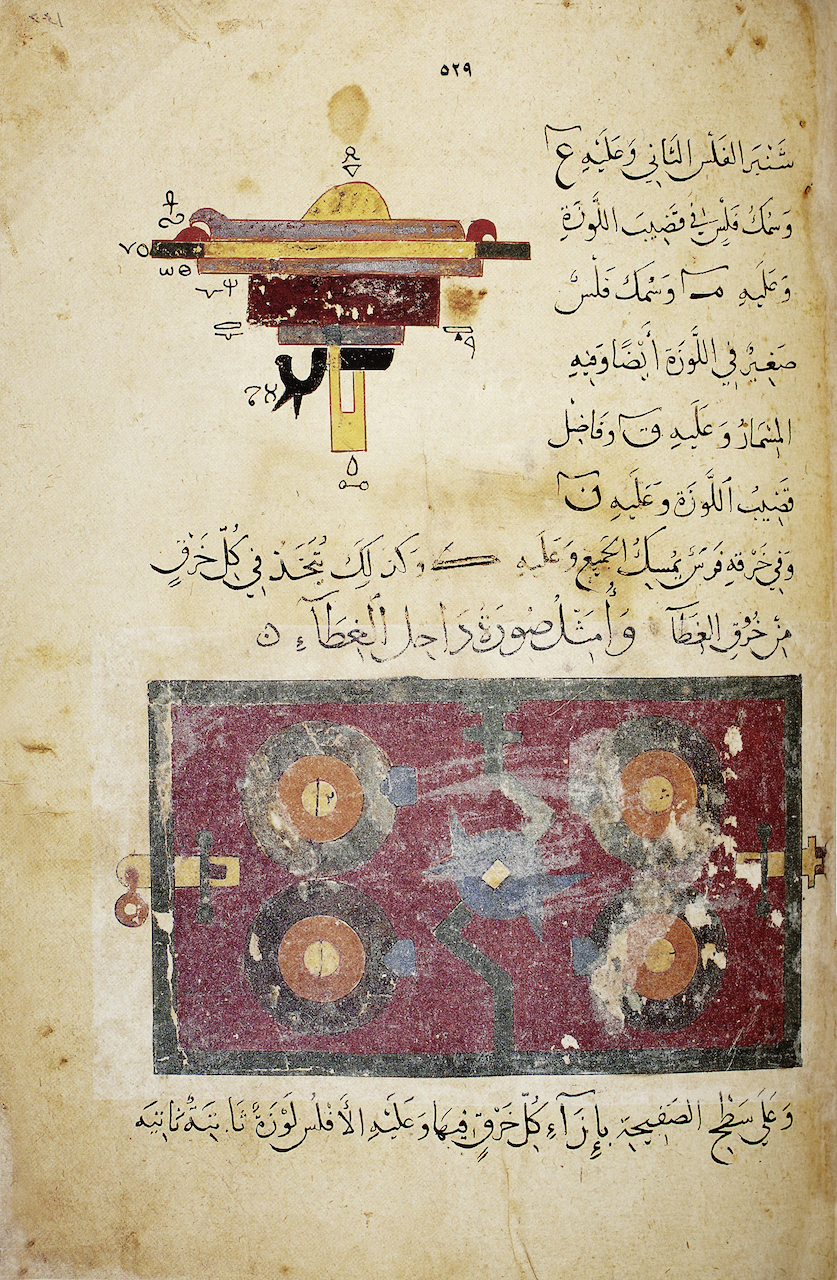 ٥٢٩
سنبر الفلس الثاني وعليه ع
وسمك فلس في قضيب اللوزة
وعليه مـ وسمك فلس
صغير في اللوزة أيضًا وفيه
المسمار وعليه ق وفاضل
قضيب اللوزة وعليه ن
وفي خرقه فرس يمسك الجميع وعليه ك وكذلك يتخذ في كل خرق
من خروق الغطآ وأمثل صورة داخل الغطآء ن
وعلى سطح الصفيحة بإزآء كل خرق فيها وعليه الأفلس لوزة ثانية ثانية